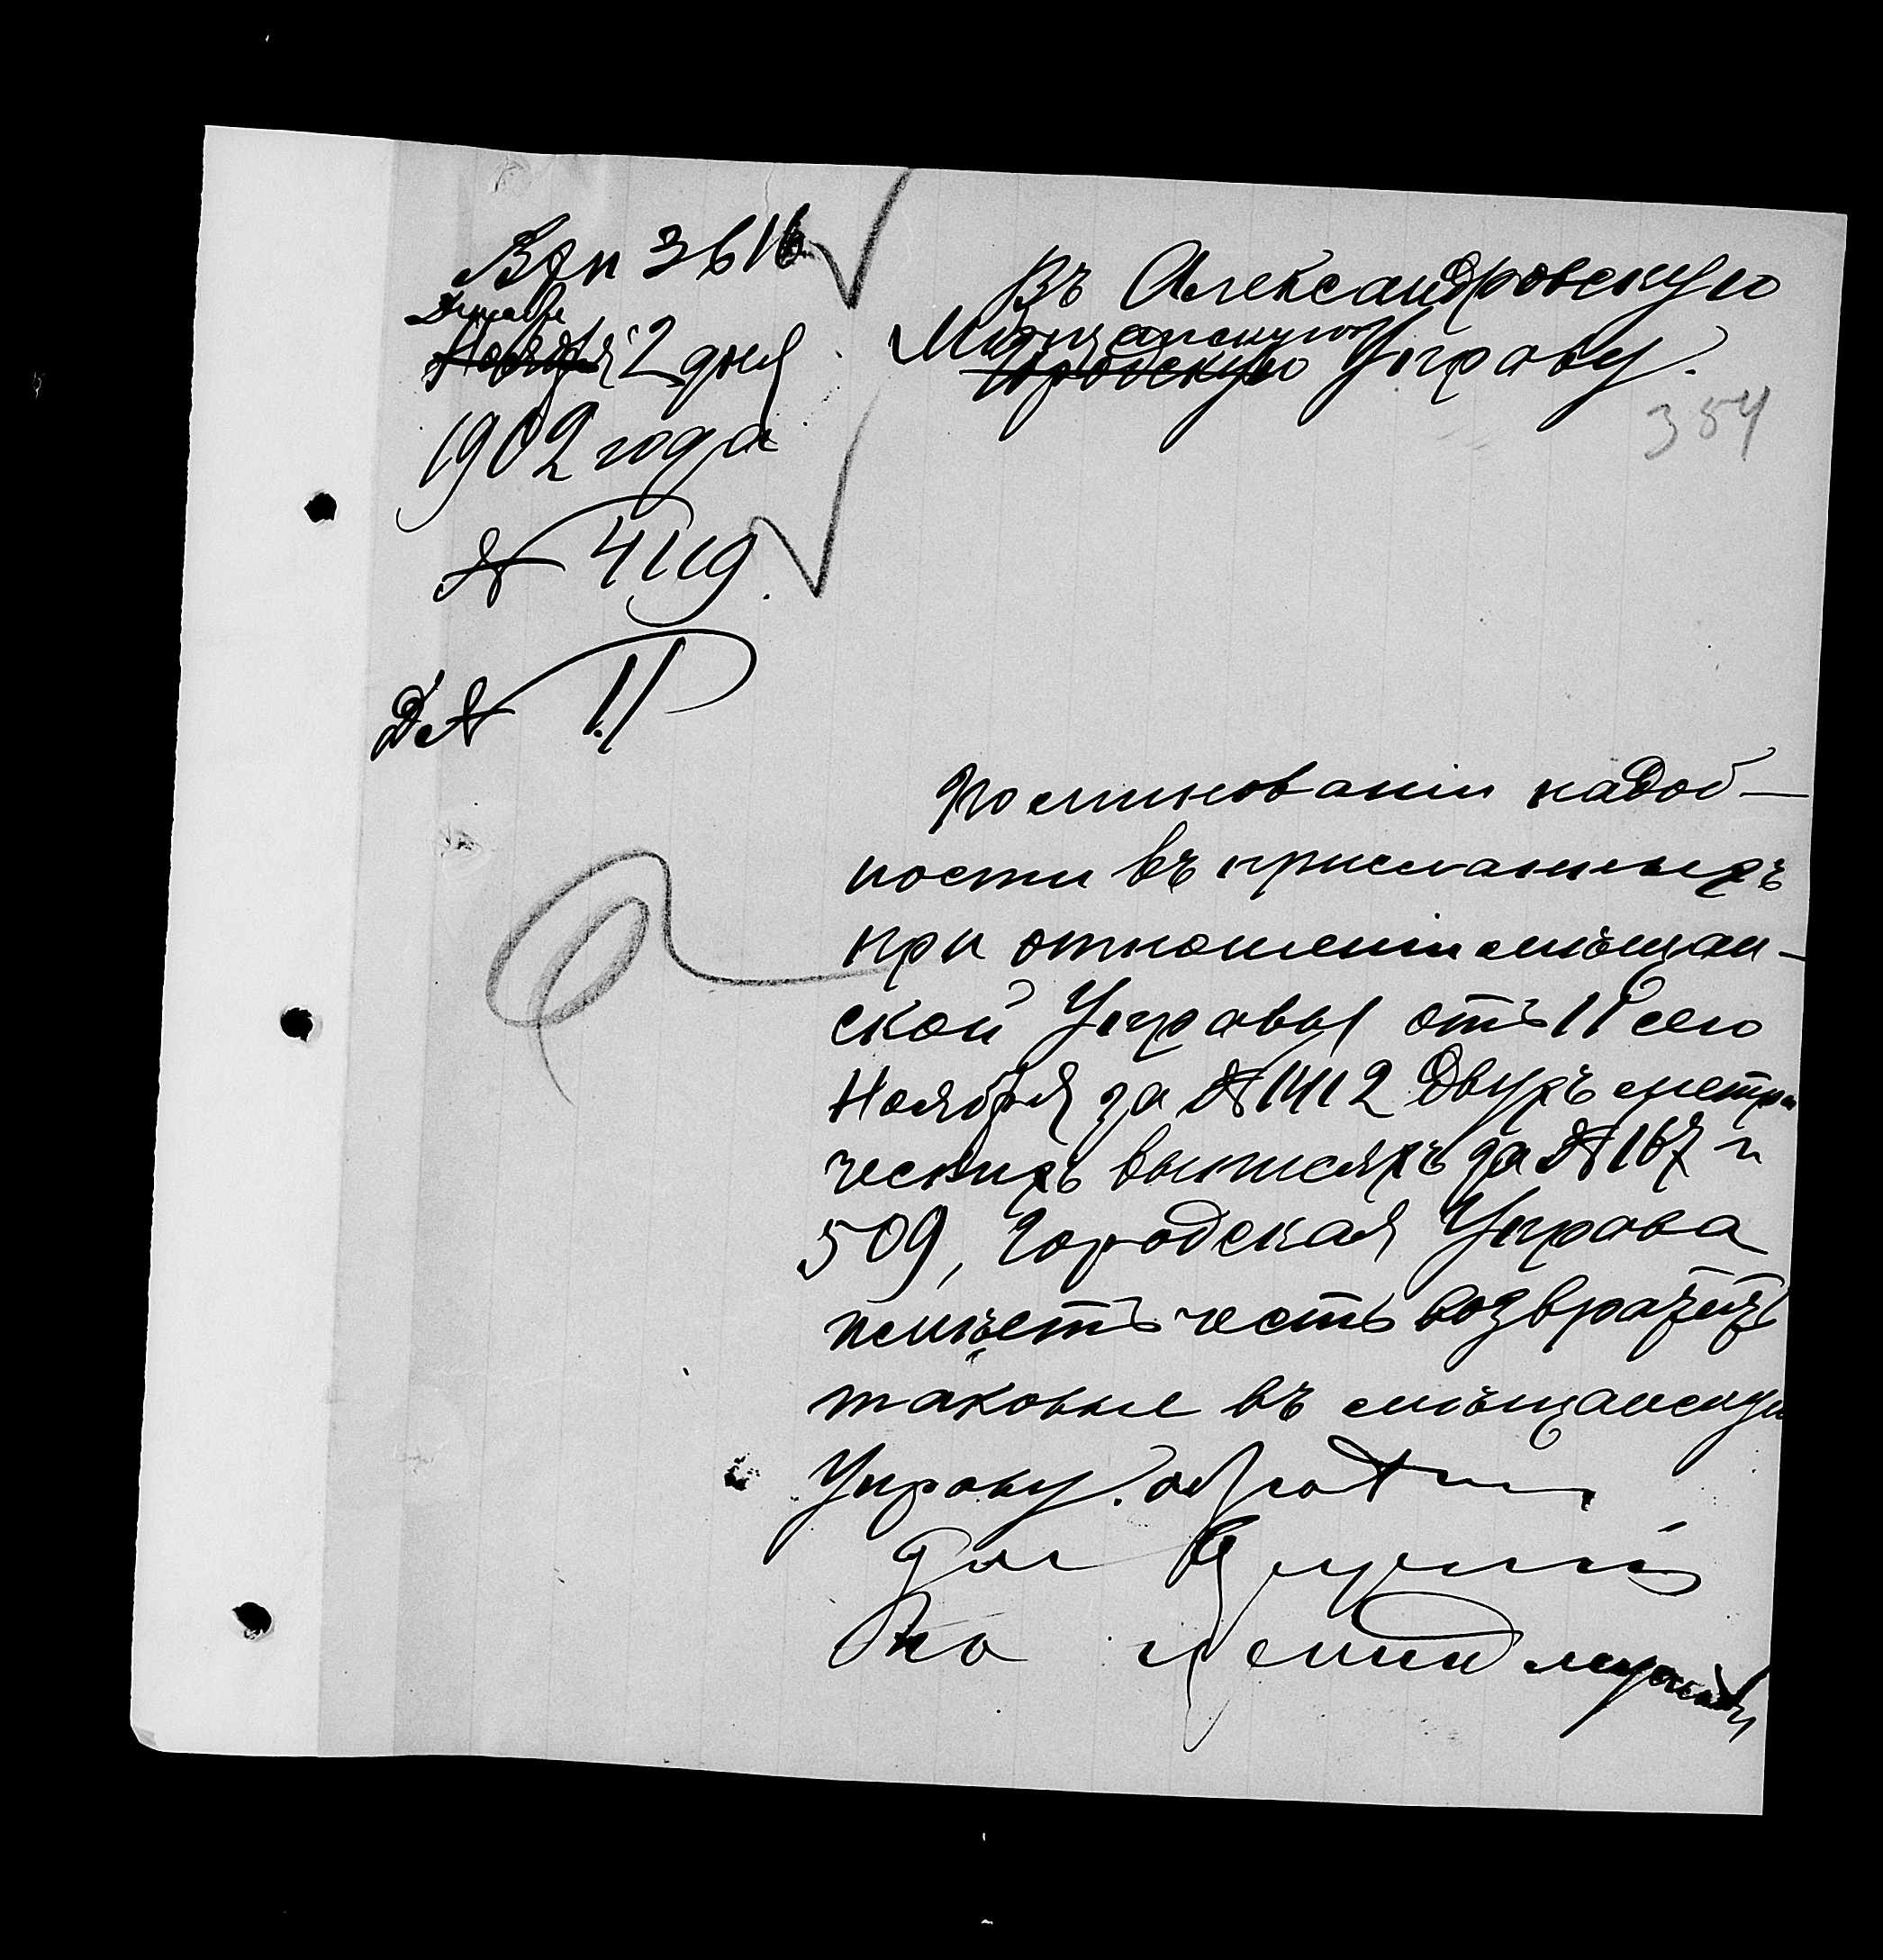 Вх № 3616
Декабря
Ноября 2 дня
1902 года
№ 4119.
Д № 11
Въ Александровскую
Мѣщанскую
Городскую Управу.
354
По минованіи надоб-
ности въ присланныхъ
при отношеніи мѣщан-
ской Управы отъ 11 сего
Ноября за № 1412 двухъ метри
ческихъ выписяхъ за № 167 и
509, Городская Управа
имѣетъ честь возвратить
таковые въ мѣщанскую
Управу.